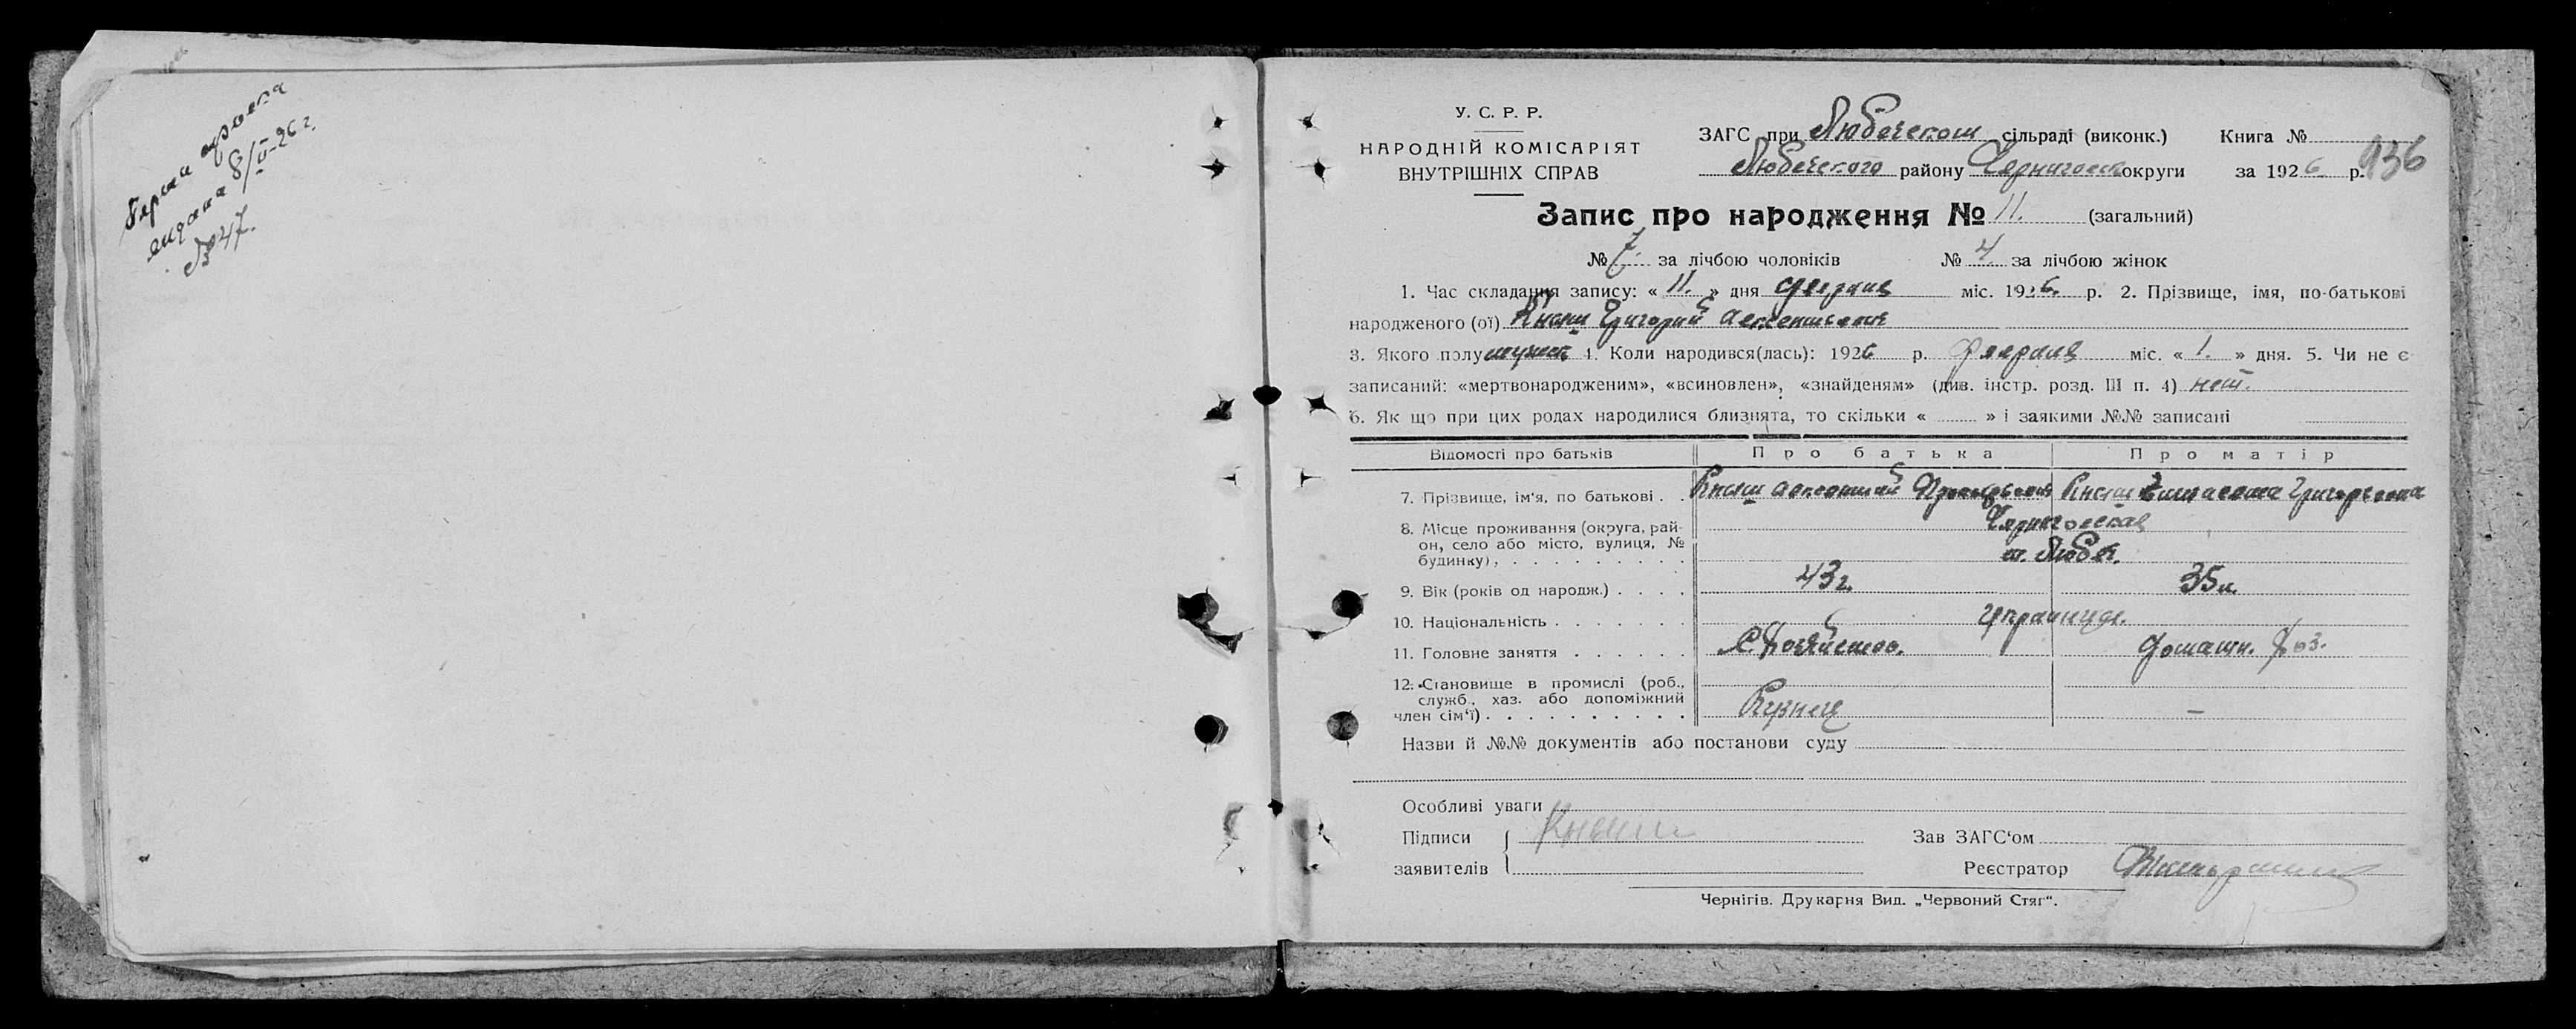 выдана 8/II-26 г.
№ 47.
У. С. Р. Р.
НАРОДНІЙ КОМІСАРІЯТ
ВНУТРІШНІХ СПРАВ
ЗАГС при Любечском сільраді (виконк.) Книга №
Любечского району Чернигов округи за 1926 р. 936
Запис про народження № 11. (загальний)
№ 7 за лічбою чоловіків № 4 за лічбою жінок
1. Час складання запису: « 11. » дня февраля міс. 1926. р. 2. Прізвище, імя, по-батькові
народженого (ої) Кныш Григорий Авксентьевич
3. Якого полу мужск 4. Коли народився(лась): 1926 р. февраля міс. « 1. » дня. 5. Чи не є
записаний: «мертвонародженим», «всиновлен», «знайденям» (див. інстр. розд. III п. 4) нет.
6. Як що при цих родах народилися близнята, то скільки « » і заякими №№ записані
Відомості про батьків Про батька Про матір
7. Прізвище, ім'я, по батькові . . Кныш Авксентий Прокофьевич Кныш Григорьевна
8. Місце проживання (округа, рай- Черниговская
он, село або місто, вулиця, № м. Любеч.
будинку), . . . . . . . . . .
9. Вік (років од народж.) . . . . 43 г. 35 л.
10. Національність . . . . . . . Украинцы.
11. Головне заняття . . . . . . С. Хозяйство. Домашн. Хоз.
12. Становище в промислі (роб.,
служб., хаз. або допоміжний
член сім'ї) . . . . . . . . . . Кузнец —
Назви й №№ документів або постанови суду
Особливі уваги
Підписи Кныш Зав ЗАГС'ом
заявителів Реєстратор
Чернігів. Друкарня Вид. „Червоний Стяг“.